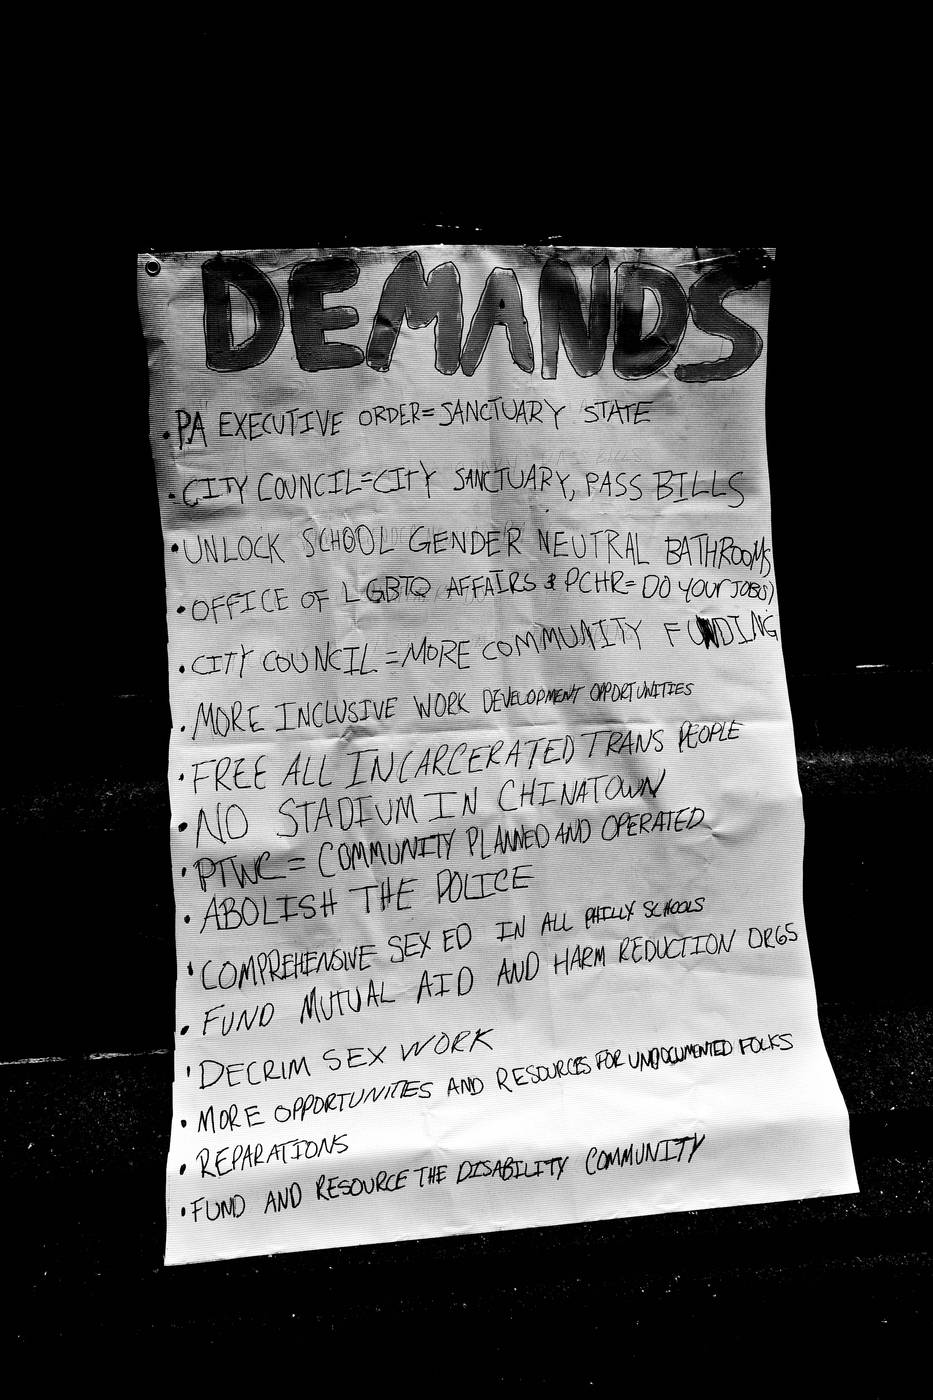 DEMANDS
• PA EXECUTIVE ORDER= SANCTUARY STATE
• CITY COUNCIL=CITY SANCTUARY, PASS BILLS
• UNLOCK SCHOOL GENDER NEUTRAL BATHROOMS
• OFFICE OF LGBTQ AFFAIRS & PCHR= DO YOUR JOB(S)
• CITY COUNCIL = MORE COMMUNITY FUNDING
• MORE INCLUSIVE WORK DEVELOPMENT OPPORTUNITIES
• FREE ALL INCARCERATED TRANS PEOPLE
• NO STADIUM IN CHINATOWN
• PTWC = COMMUNITY PLANNED AND OPERATED
• ABOLISH THE POLICE
• COMPREHENSIVE SEX ED IN ALL PHILLY SCHOOLS
• FUND MUTUAL AID AND HARM REDUCTION ORGS
• DECRIM SEX WORK
• MORE OPPORTUNITIES AND RESOURCES FOR UNDOCUMENTED FOLKS
• REPARATIONS
• FUND AND RESOURCE THE DISABILITY COMMUNITY